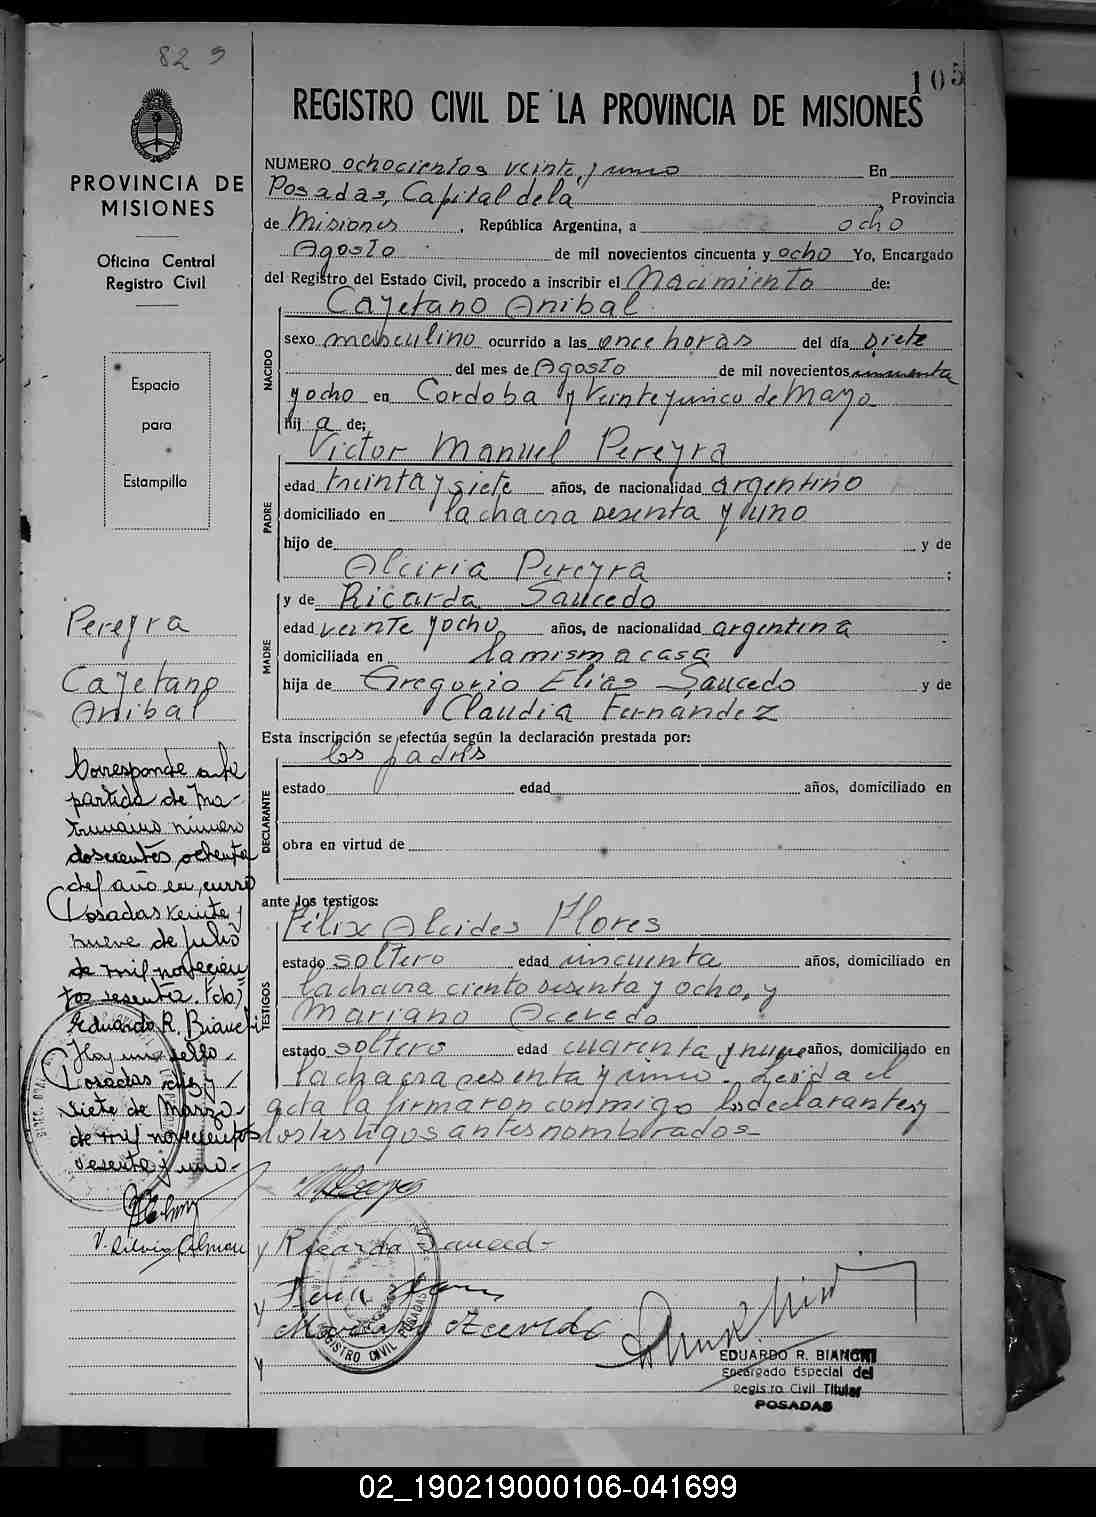 82 9
105
REGISTRO CIVIL DE LA PROVINCIA DE MISIONES
PROVINCIA DE
MISIONES
Oficina Central
Registro Civil
Espacio
para
Estampilla
NUMERO ochocientos veinte y uno En
Posadas, Capital de la Provincia
de Misiones, República Argentina, a ocho
Agosto de mil novecientos cincuenta y ocho Yo, Encargado
del Registro del Estado Civil, procedo a inscribir el Nacimiento de:
Cayetano Anibal
NACIDO
sexo masculino ocurrido a las once horas del día siete
del mes de Agosto de mil novecientos cincuenta
y ocho en Cordoba y Veinte y cinco de Mayo
hij a de:
Victor Manuel Pereyra
PADRE
edad treinta y siete años, de nacionalidad argentino
domiciliado en la chacra sesenta y uno
hijo de y de
Pereyra ;
y de Ricarda Saucedo
MADRE
edad veinte y ocho años, de nacionalidad argentina
domiciliada en la misma casa
hija de Gregorio Elias Saucedo y de
Claudia Fernández
Esta inscripción se efectúa según la declaración prestada por:
los padres
DECLARANTE
estado edad años, domiciliado en
obra en virtud de
ante los testigos:
Félix Alcides Flores
TESTIGOS
estado soltero edad cincuenta años, domiciliado en
la chacra ciento sesenta y ocho, y
Mariano Acevedo
estado soltero edad cuarenta y nueve años, domiciliado en
la chacra sesenta y uno. Leida el
acta la firmaron conmigo los declarantes y
los testigos antes nombrados-
y Ricarda Saucedo
y
Mariano Acevedo
y
REGISTRO CIVIL POSADAS
EDUARDO R. BIANCHI
Encargado Especial del
Registro Civil Titular
POSADAS
Pereyra
Cayetano
Anibal
Corresponde a la
partida de Ma-
trimonio número
doscientos ochenta
del año en curso
Posadas veinte y
nueve de Julio
de mil novecien
tos sesenta. (do)
Eduardo R. Bianchi
Hay un sello.
Posadas diez y
siete de Marzo
de mil novecientos
sesenta y uno-
02_190219000106-041699